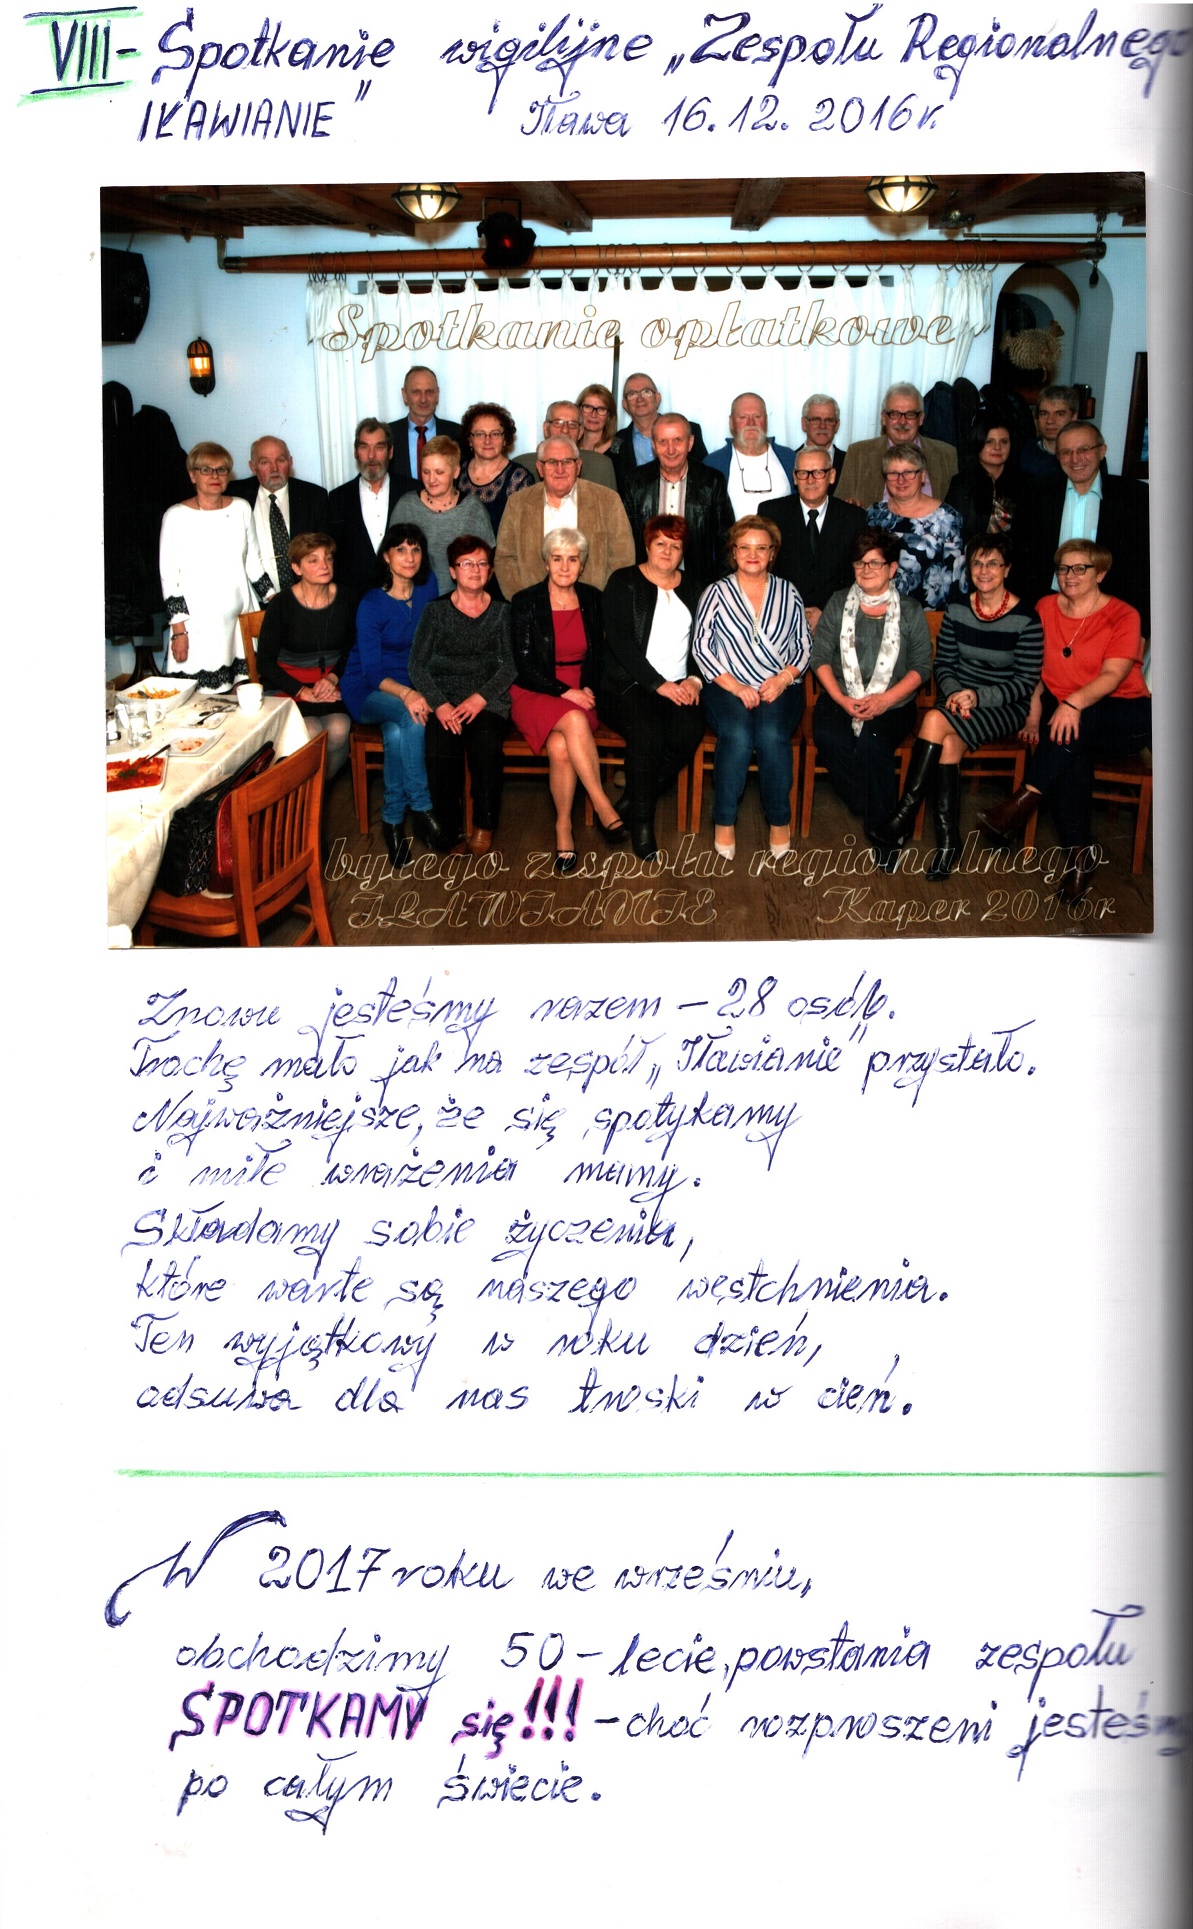 VIII - Spotkanie wigilijne „Zespołu Regionalnego
IŁAWIANIE" Iława 16.12.2016r.
Spotkanie opłatkowe
byłego zespołu regionalnego
IŁAWIANIE Kaper 2016r
Znowu jesteśmy razem - 28 osób.
Trochę mało jak na zespół „Iławianie" przystało.
Najważniejsze, że się spotykamy
i miłe wrażenia mamy.
Składamy sobie życzenia,
które warte są naszego westchnienia.
Ten wyjątkowy w roku dzień,
odsuwa dla nas troski w cień.
W 2017 roku we wrześniu,
obchodzimy 50-lecie powstania zespołu
SPOTKAMY się!!! - choć rozproszeni jesteśmy
po całym świecie.